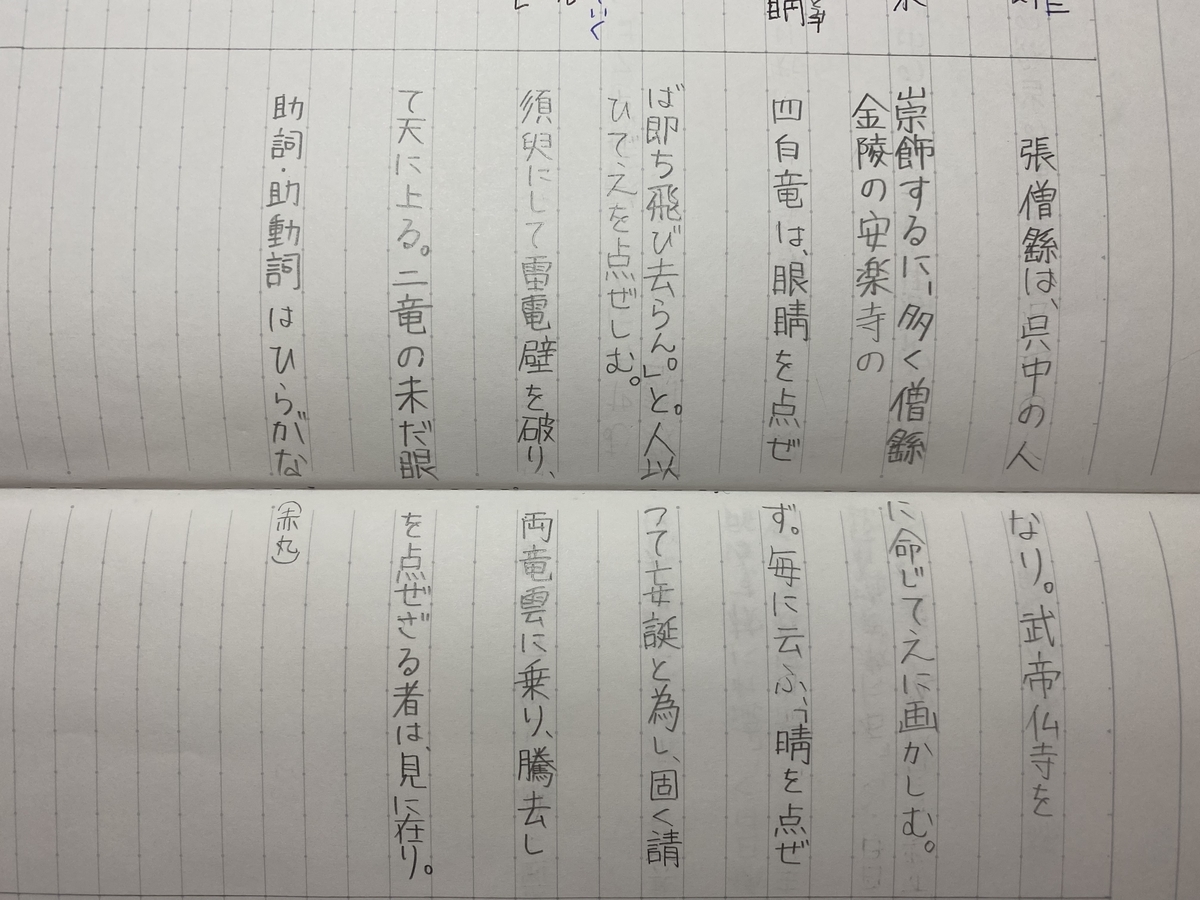 張僧繇は、呉中の人なり。武帝仏寺を
崇飾するに、多く僧繇に命じてえに画かしむ。
金陵の安楽寺の
四白竜は、眼睛を点ぜず。毎に云ふ、「睛を点ぜ
ば即ち飛び去らん。」と。人以つて妄誕と為し、固く請
ひてえを点ぜしむ。
須臾にして雷電壁を破り、両竜雲に乗り、騰去し
て天に上る。二竜の未だ眼を点ぜざる者は、見に在り。
助詞・助動詞はひらがな(赤丸)